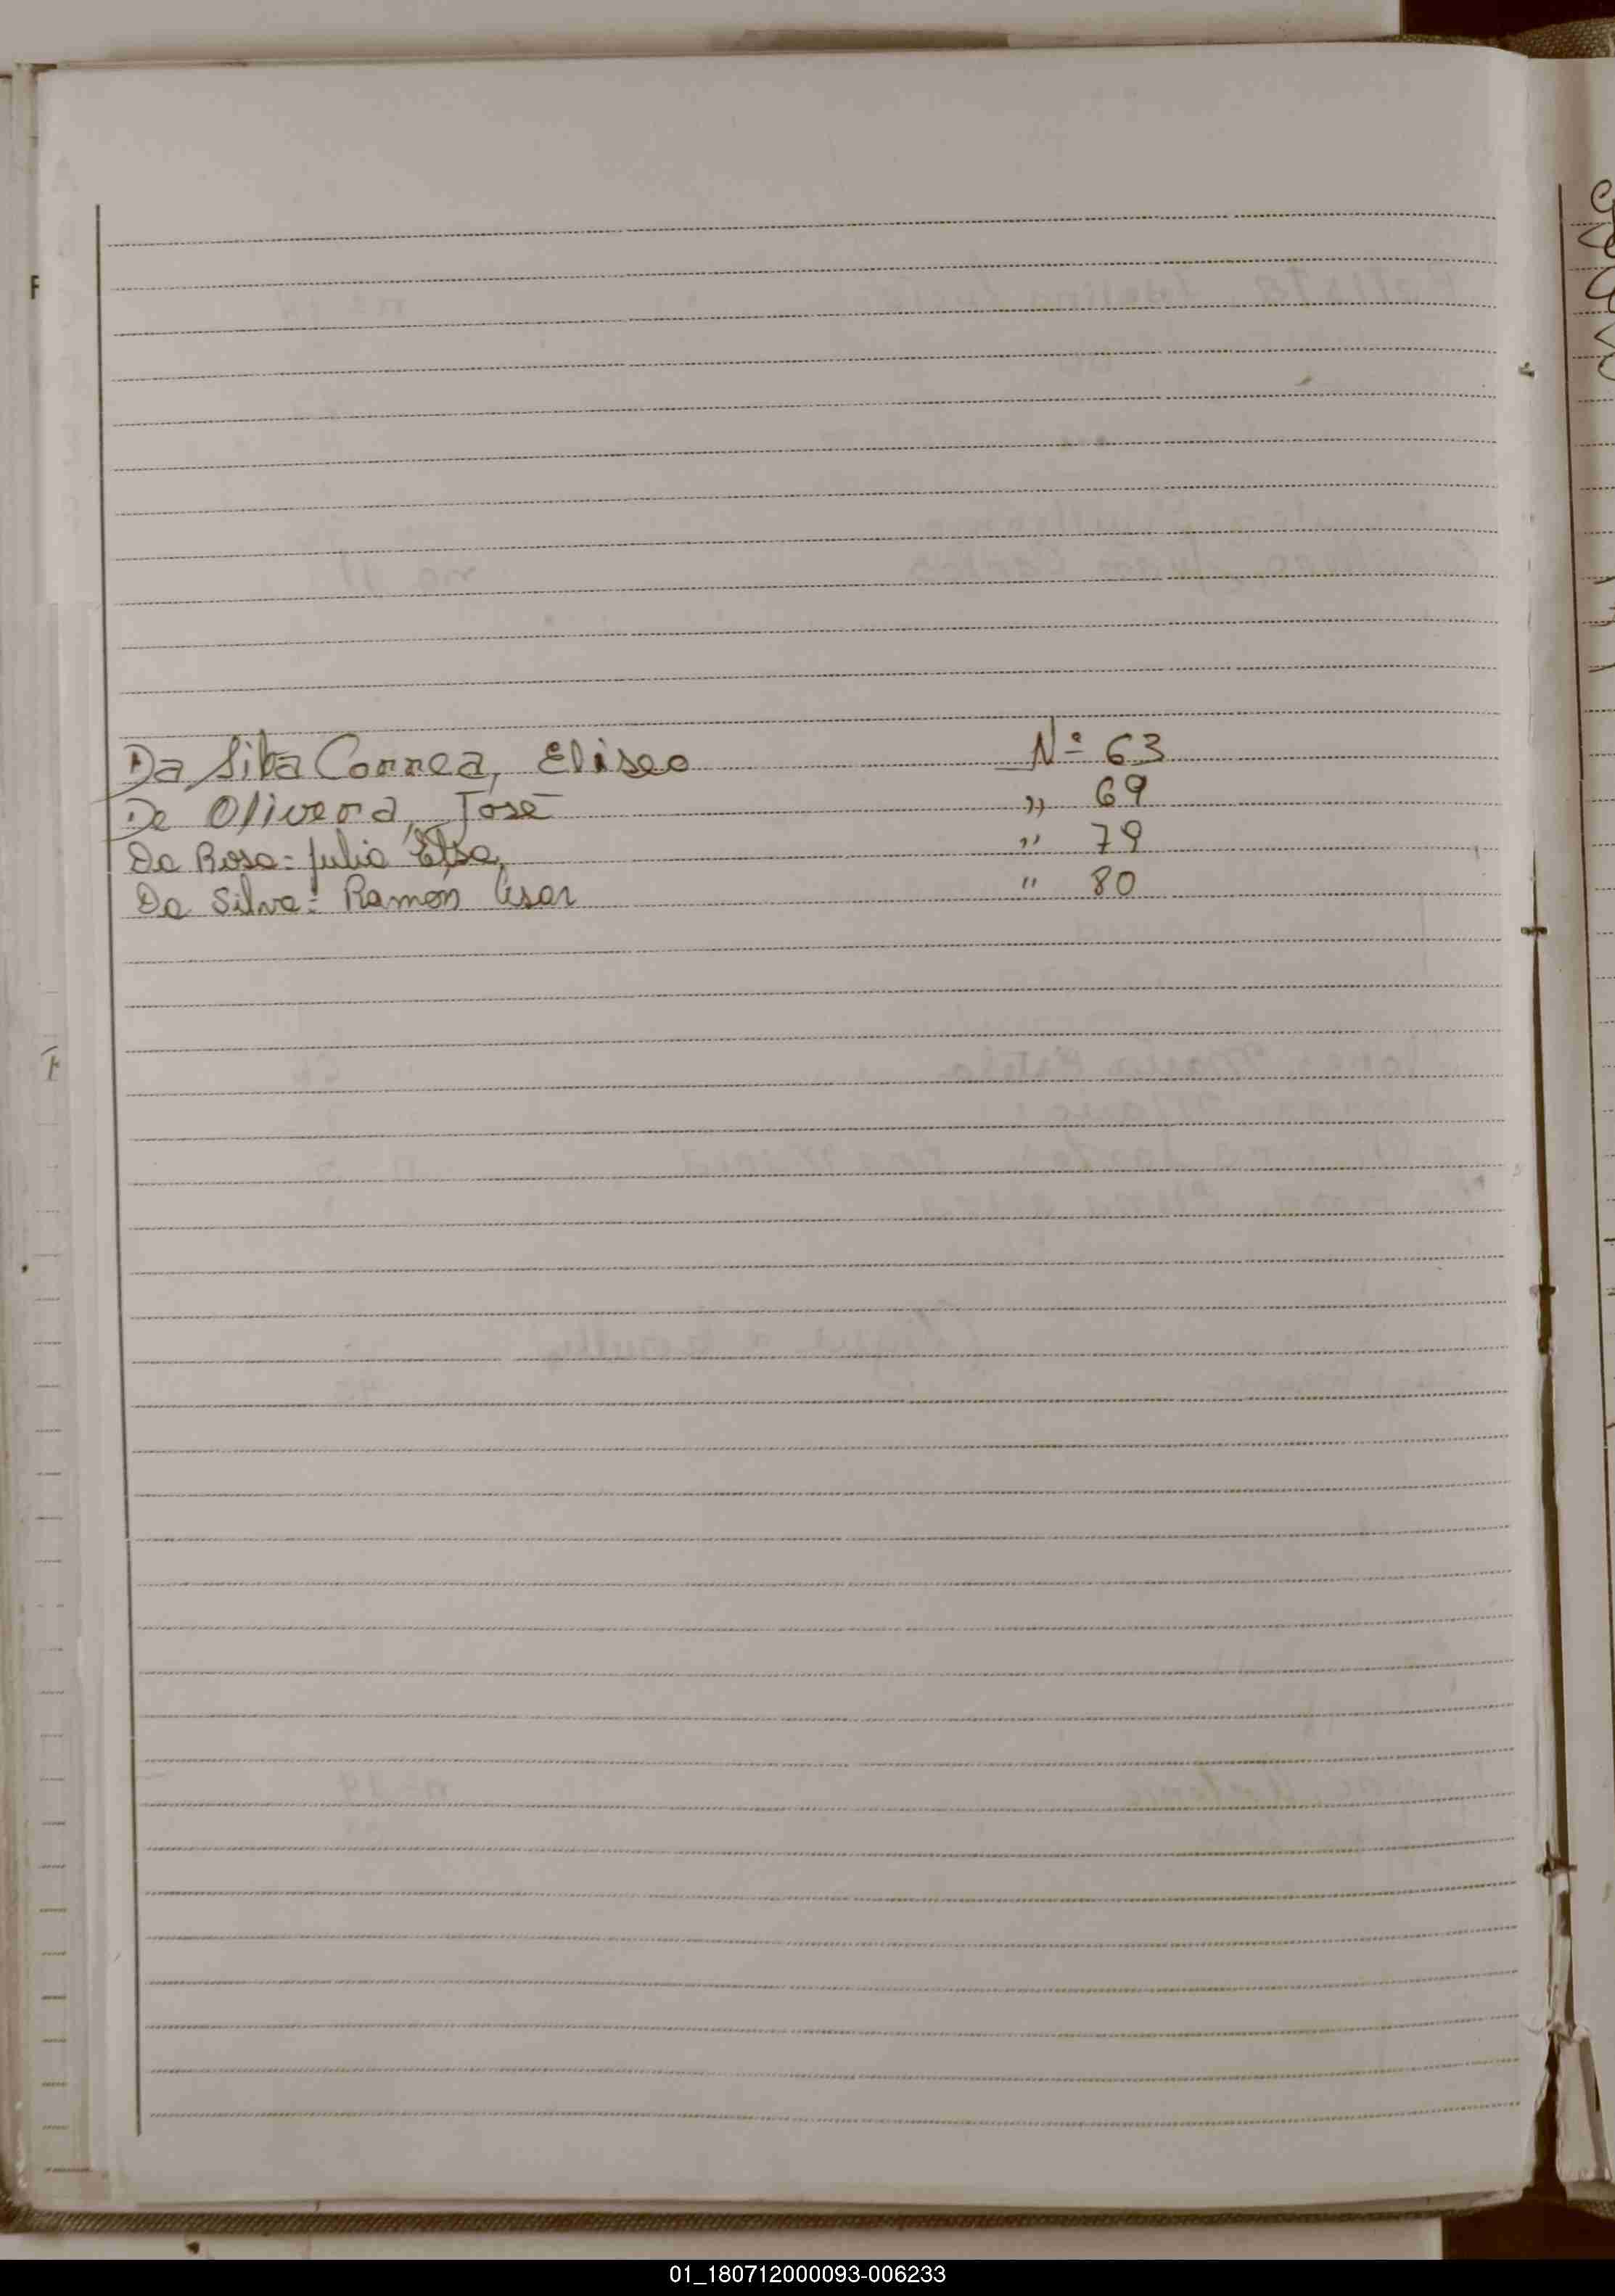 F
Da Silva Correa, Eliseo N° 63
De Olivera, José " 69
Da Rosa= Julio Elsa, " 79
Da Silva= Ramón Cesar " 80
01_180712000093-006233